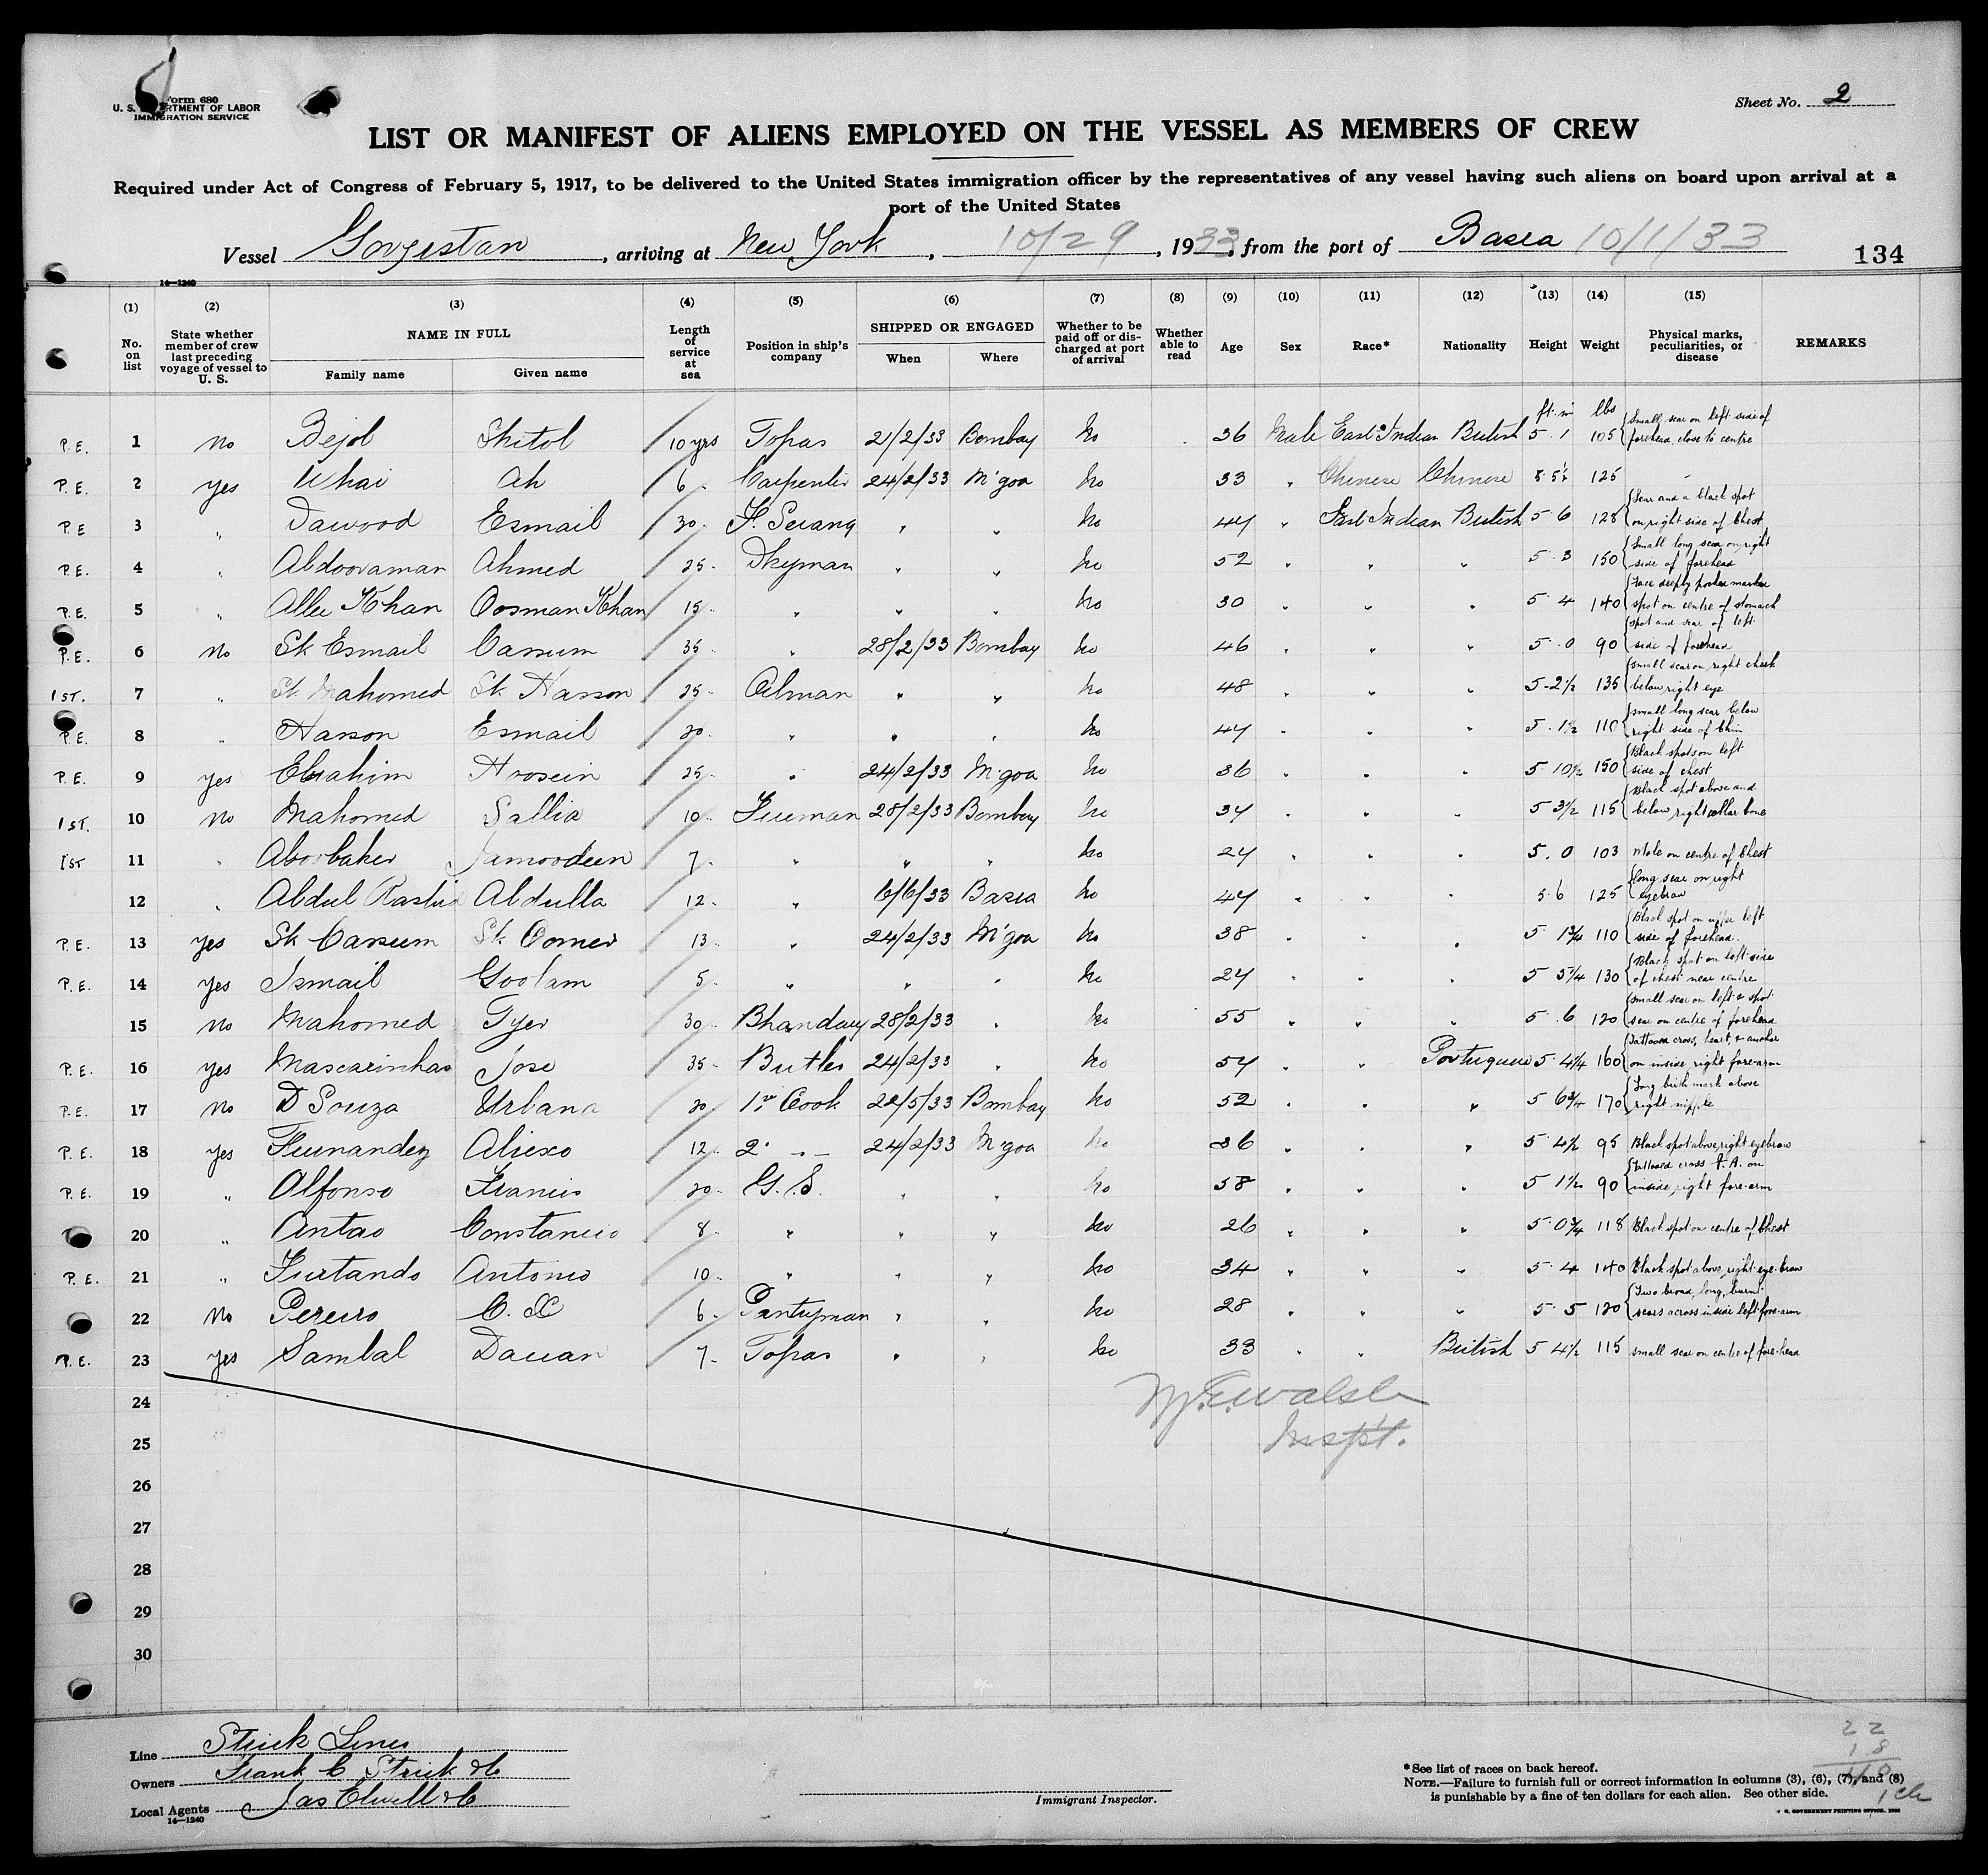 Form 680
U. S. DEPARTMENT OF LABOR
IMMIGRATION SERVICE
Sheet No. 2
LIST OR MANIFEST OF ALIENS EMPLOYED ON THE VESSEL AS MEMBERS OF CREW
Required under Act of Congress of February 5, 1917, to be delivered to the United States immigration officer by the representatives of any vessel having such aliens on board upon arrival at a
port of the United States
Vessel Gorjistan, arriving at New York, 10/29, 1933, from the port of Basra 10/1/33
134
14—1240
(1) (2) (3) (4) (5) (6) (7) (8) (9) (10) (11) (12) (13) (14) (15)
No. on list
State whether member of crew last preceding voyage of vessel to U. S.
NAME IN FULL
Family name
Given name
Length of service at sea
Position in ship's company
SHIPPED OR ENGAGED
When
Where
Whether to be paid off or discharged at port of arrival
Whether able to read
Age
Sex
Race*
Nationality
Height
Weight
Physical marks, peculiarities, or disease
REMARKS
ft. in lbs
P.E. 1 No Bejol Shitol 10 yrs Topas 21/2/33 Bombay No 36 Male East Indian British 5 . 1 105 Small scar on left side of forehead, close to centre
P.E. 2 yes Whai Ah 6 Carpenter 24/2/33 M'goa No 33 " Chinese Chinese 5 5½ 125 -
P.E 3 " Dawood Esmail 30 F. Serang " " No 44 " East Indian British 5 6 128 Scar and a black spot on right side of Chest
P.E. 4 " Abdooraman Ahmed 25 Dkyman " " No 52 " " " 5 . 3 150 Small long scar on right side of forehead
P.E. 5 " Allee Khan Oosman Khan 15 " " " No 30 " " " 5 4 140 Face deeply pocked marked spot on centre of stomach
P.E. 6 No Sk Esmail Cassum 35 " 28/2/33 Bombay No 46 " " " 5 . 0 90 spot and scar of left side of forehead
1ST. 7 " Sk Mahomed Sk Hasson 25 Oilman " " No 48 " " " 5-2½ 135 small scar on right cheek below right eye
P.E. 8 " Hasson Esmail 20 " " " No 44 " " " 5 . 1½ 110 small long scar below right side of Chin
P.E. 9 yes Ebrahim Hoosein 25 " 24/2/33 M'goa No 36 " " " 5 10½ 150 Black spots on left side of chest
1ST. 10 No Mahomed Sallia 10 Fireman 28/2/33 Bombay No 34 " " " 5 3½ 115 Black spot above and below right collar bone
1ST 11 " Aboobaker Jamoodeen 7 " " " No 24 " " " 5 . 0 103 Mole on centre of Chest
12 " Abdul Rashid Abdulla 12 " 6/6/33 Basra No 44 " " " 5 6 125 long scar on right eyebrow
P.E. 13 yes Sk Cassum Sk Oomer 13 " 24/2/33 M'goa No 38 " " " 5 1¾ 110 Black spot on upper left side of forehead.
P.E. 14 yes Ismail Goolam 5 " " " No 24 " " " 5 5¼ 130 Black spot on left side of chest near centre
15 No Mahomed Tyer 30 Bhandary 28/2/33 " No 55 " " " 5 . 6 120 small scar on left & spot scar on centre of forehead
P.E. 16 yes Mascarinhas Jose 35 Butler 24/2/33 " No 54 " " Portuguese 5 4¼ 160 Tattooed cross, heart, & anchor on inside right fore-arm
P.E. 17 No D Souza Urbana 20 1st Cook 22/5/33 Bombay No 52 " " " 5 6¾ 170 Long birth mark above right nipple
P.E. 18 yes Fernandez Aliexo 12 2" " 24/2/33 M'goa No 36 " " " 5 4½ 95 Black spot above right eyebrow
P.E. 19 " Alfonso Francis 20 G.S. " " No 58 " " " 5 1½ 90 tattooed cross F. A. on inside right fore-arm
20 " Antao Constancio 8 " " " No 26 " " " 5 . 0¾ 118 Black spot on centre of Chest
P.E. 21 " Furtando Antonio 10 " " " No 34 " " " 5 . 4 140 Black spot above right eye-brow
22 No Pereiro C. X 6 Pantryman " " No 28 " " " 5 . 5 120 Two broad, long, burnt scars across inside left fore-arm
P.E. 23 yes Sambal Dauan 7 Topas " " No 33 " " British 5 4½ 115 small scar on centre of fore-head
24
M.E. Walsh
25
Inspt.
26
27
28
29
30
Line Strick Lines
Owners Frank C Strick & Co
Local Agents Jas Elwell & Co
14—1240
Immigrant Inspector.
*See list of races on back hereof.
NOTE.—Failure to furnish full or correct information in columns (3), (6), (7), and (8)
is punishable by a fine of ten dollars for each alien. See other side.
22
18